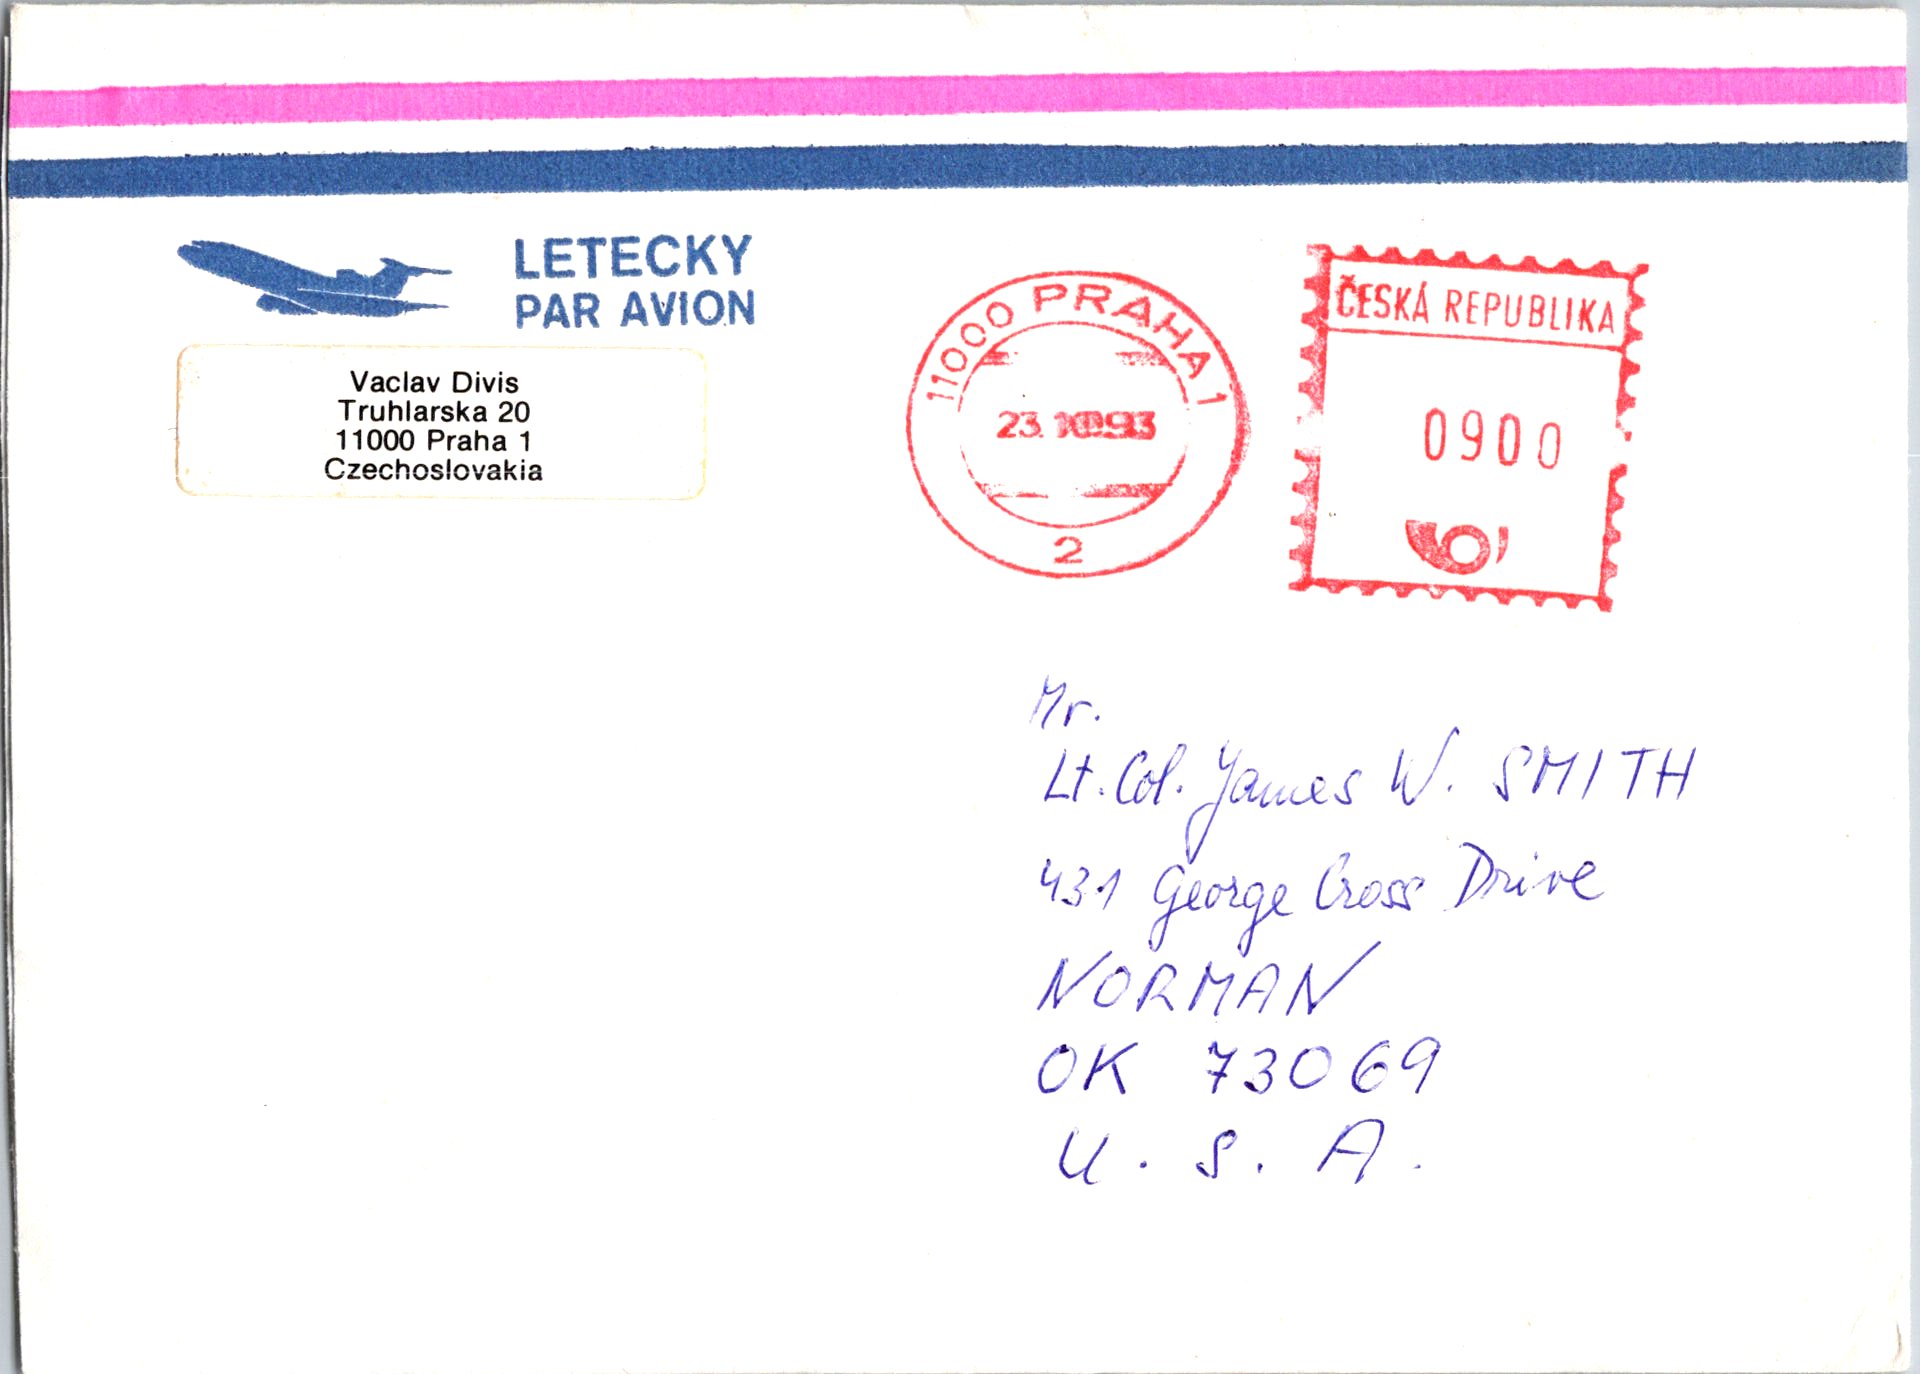 LETECKY
PAR AVION
Vaclav Divis
Truhlarska 20
11000 Praha 1
Czechoslovakia
11000 PRAHA 1
23. 93
2
ČESKÁ REPUBLIKA
0900
Mr.
Lt. Col. James W. SMITH
431 George Cross Drive
NORMAN
OK 73069
U. S. A.